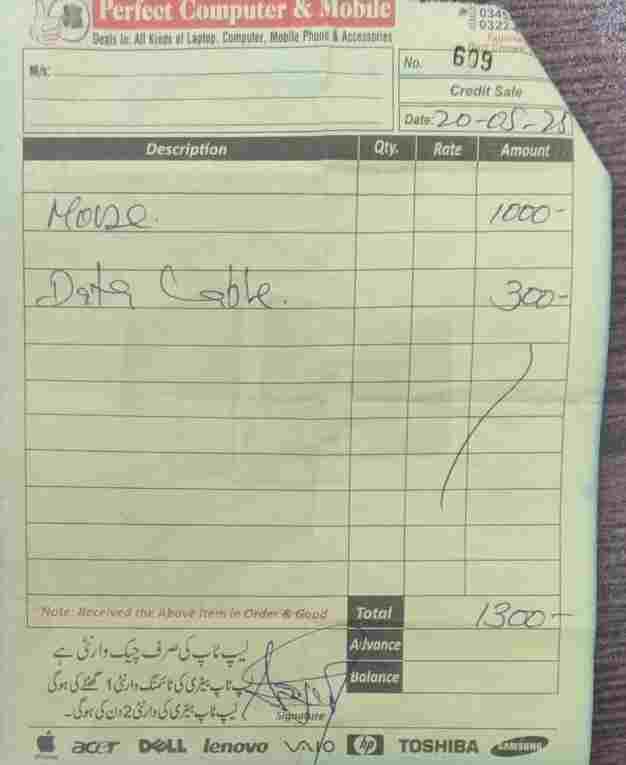 Perfect Computer & Mobile
Deals in: All Kinds of Laptop, Computer, Mobile Phone & Accessories
M/s:
No. 609
Credit Sale
Date: 20-05-25
Description Qty. Rate Amount
Mouse. 1000-
Data Cable. 300-
Note: Received the Above Item in Order & Good Total 1300-
Advance
Balance
لیپ ٹاپ کی صرف چیک وارنٹی ہے
لیپ ٹاپ بیٹری کی ٹائمنگ وارنٹی 1 گھنٹے کی ہوگی
لیپ ٹاپ بیٹری کی وارنٹی 2 دن کی ہوگی۔
Signature
acer DELL lenovo VAIO hp TOSHIBA SAMSUNG